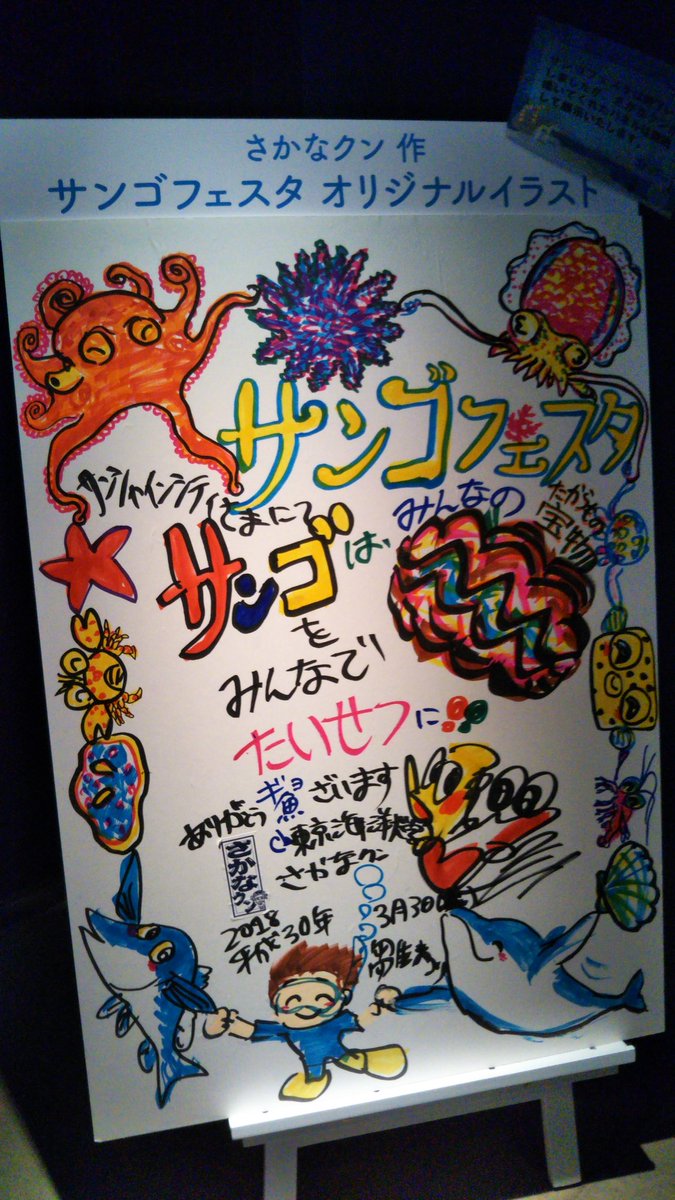 さかなクン 作
サンゴフェスタ オリジナルイラスト
サンゴフェスタ
サンシャインシティさまにて
サンゴは みんなの
たからもの
宝物!!
を
みんなで
たいせつに
ありがとうギョざいます
魚
東京海洋大学
さかなクン
さかなクン
2018
平成30年
3月30日
して展示いたします